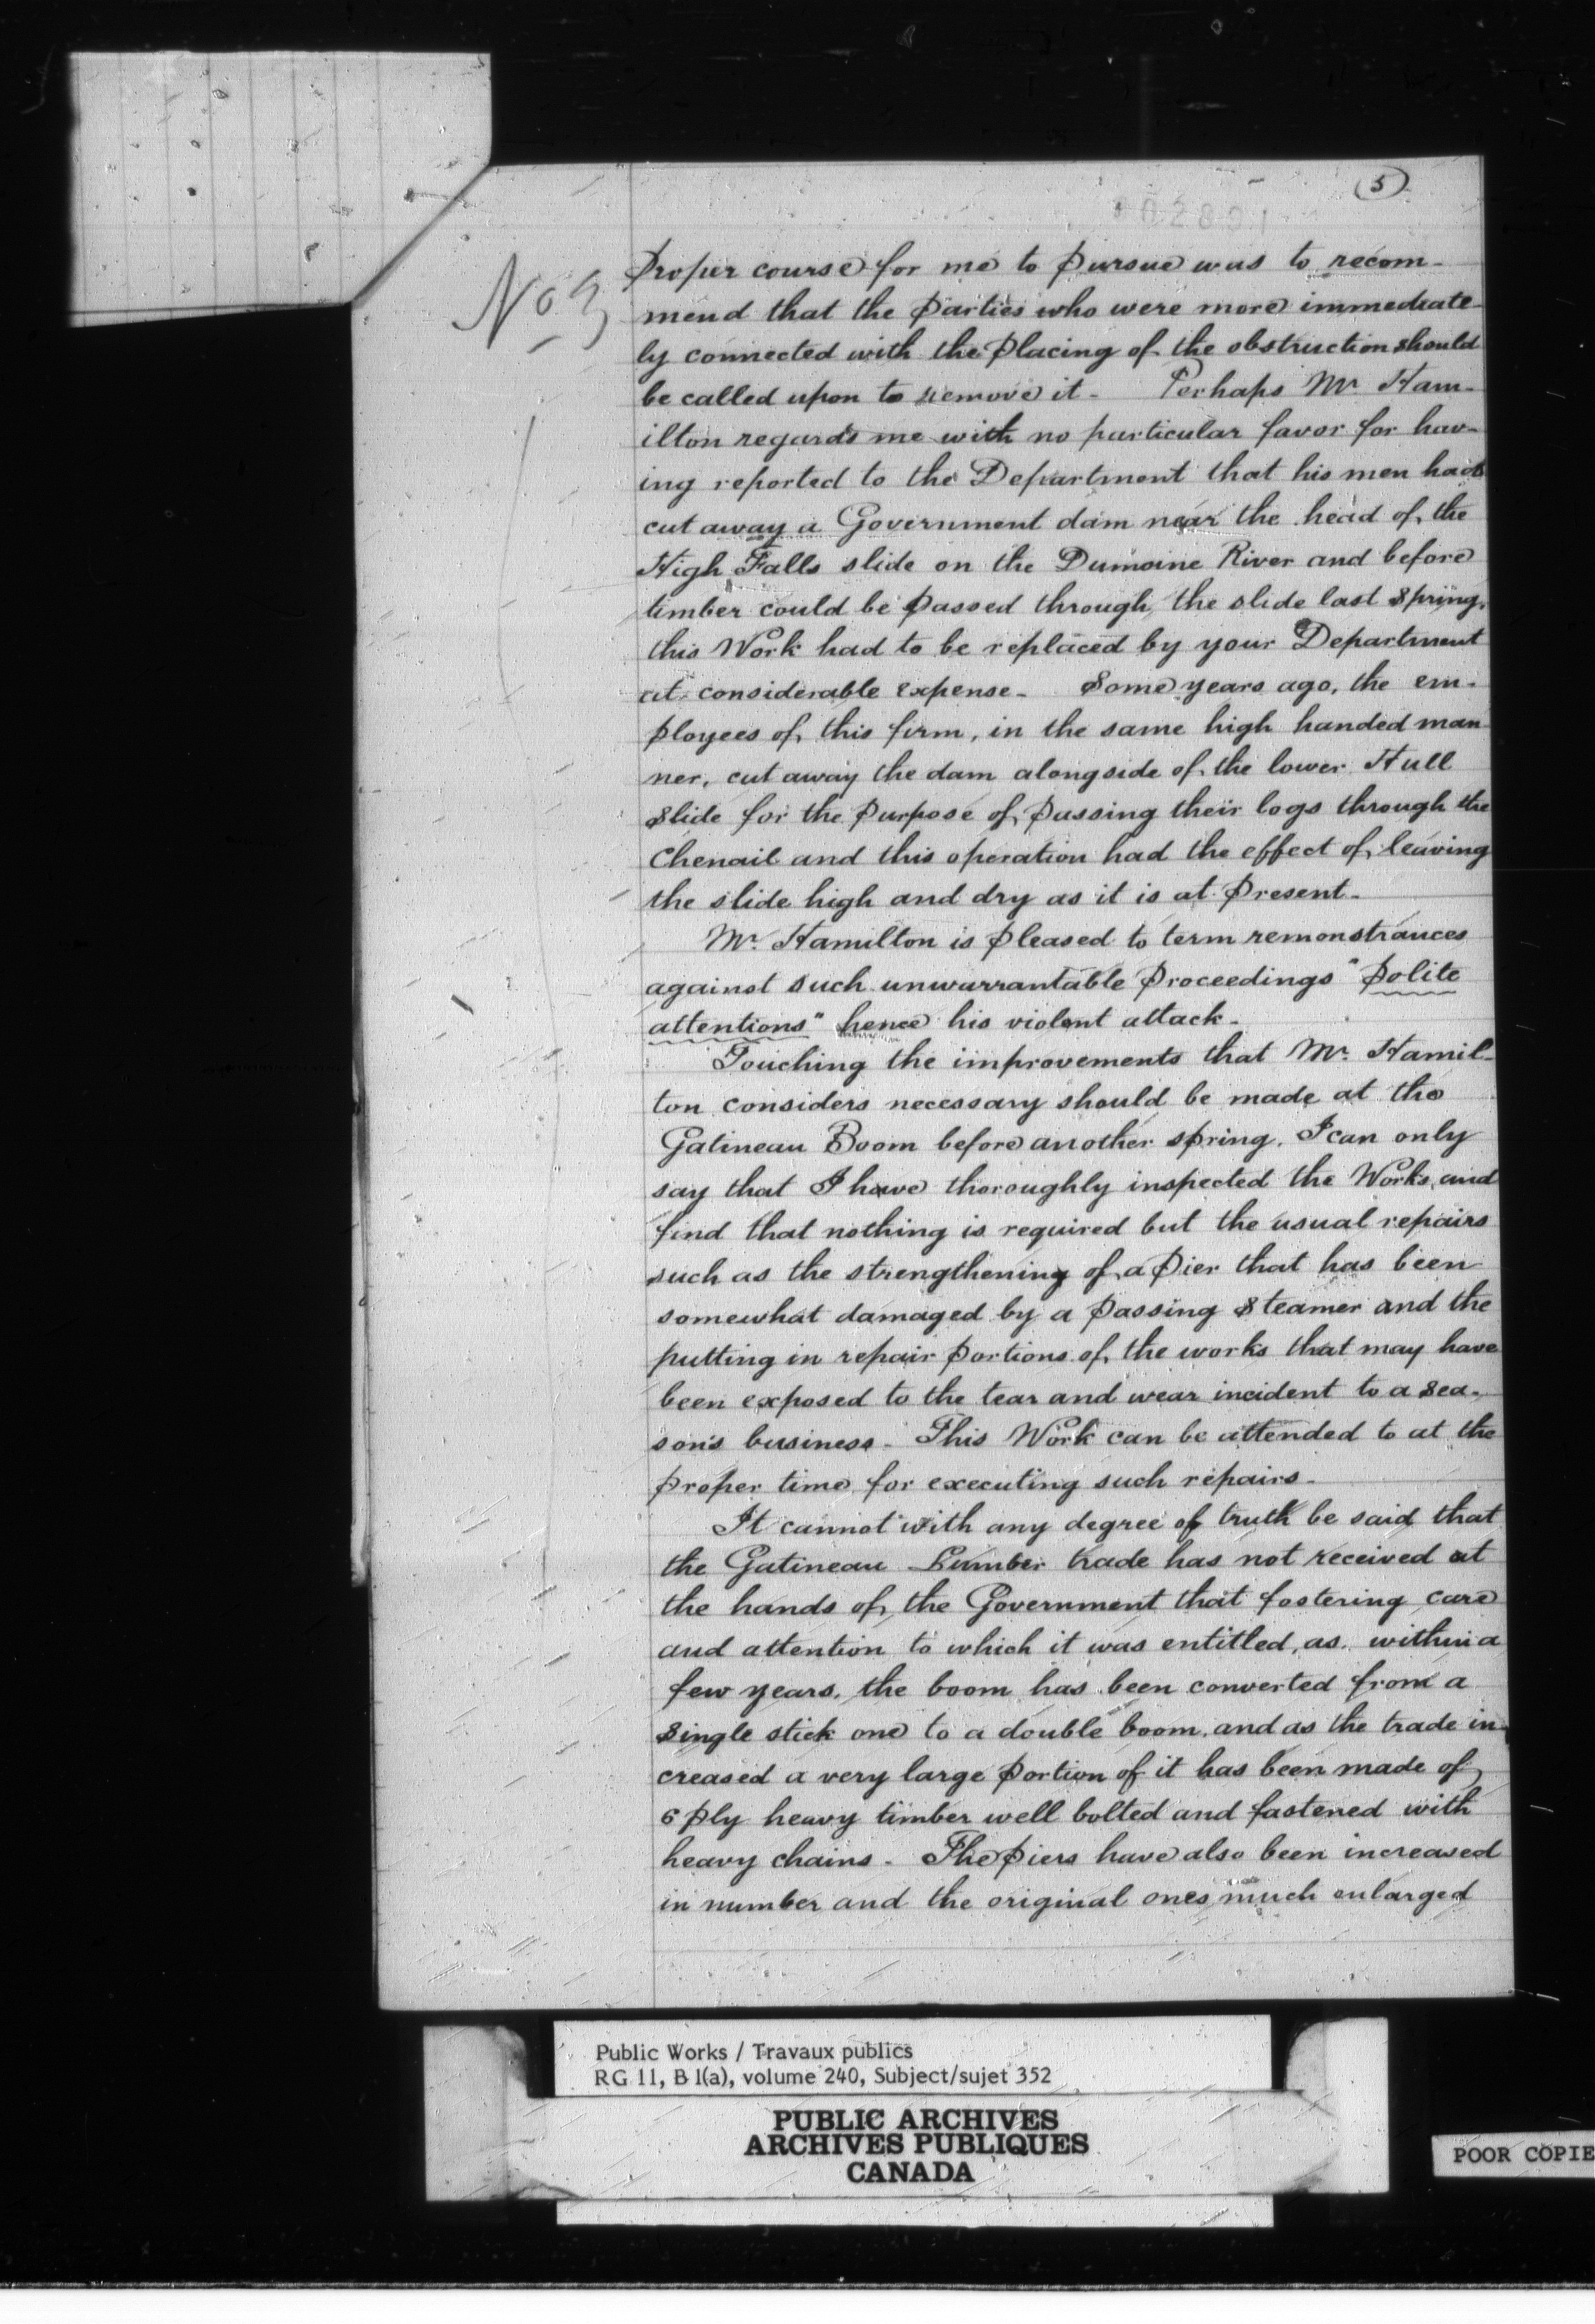 5
No 3
proper course for me to pursue was to recom-
mend that the parties who were more immediate-
ly connected with the placing of the obstruction should
be called upon to remove it - Perhaps Mr. Ham-
ilton regards me with no particular favor for hav-
ing reported to the Department that his men had
cut away a Government dam near the head of the
High Falls slide on the Dumoine River and before
timber could be passed through the slide last spring,
this Work had to be replaced by your Department
at considerable expense - Some years ago, the em-
ployees of this firm, in the same high handed man
ner, cut away the dam alongside of the lower Hull
Slide for the purpose of passing their logs through the
Chenail and this operation had the effect of leaving
the slide high and dry as it is at present -
Mr. Hamilton is pleased to term remonstrances
against such unwarrantable proceedings "polite
attentions" hence his violent attack -
Touching the improvements that Mr. Hamil-
ton considers necessary should be made at the
Gatineau Boom before another spring, I can only
say that I have thoroughly inspected the Works, and
find that nothing is required but the usual repairs
such as the strengthening of a pier that has been
somewhat damaged by a passing steamer and the
putting in repair portions of the works that may have
been exposed to the tear and wear incident to a sea-
son's business - This Work can be attended to at the
proper time for executing such repairs -
It cannot with any degree of truth be said that
the Gatineau Lumber trade has not received at
the hands of the Government that fostering care
and attention to which it was entitled, as within a
few years, the boom has been converted from a
single stick one to a double boom, and as the trade in-
creased a very large portion of it has been made of
6 ply heavy timber well bolted and fastened with
heavy chains - The piers have also been increased
in number and the original ones much enlarged
Public Works / Travaux publics
RG 11, B 1(a), volume 240, Subject/sujet 352
PUBLIC ARCHIVES
ARCHIVES PUBLIQUES
CANADA
POOR COPIE